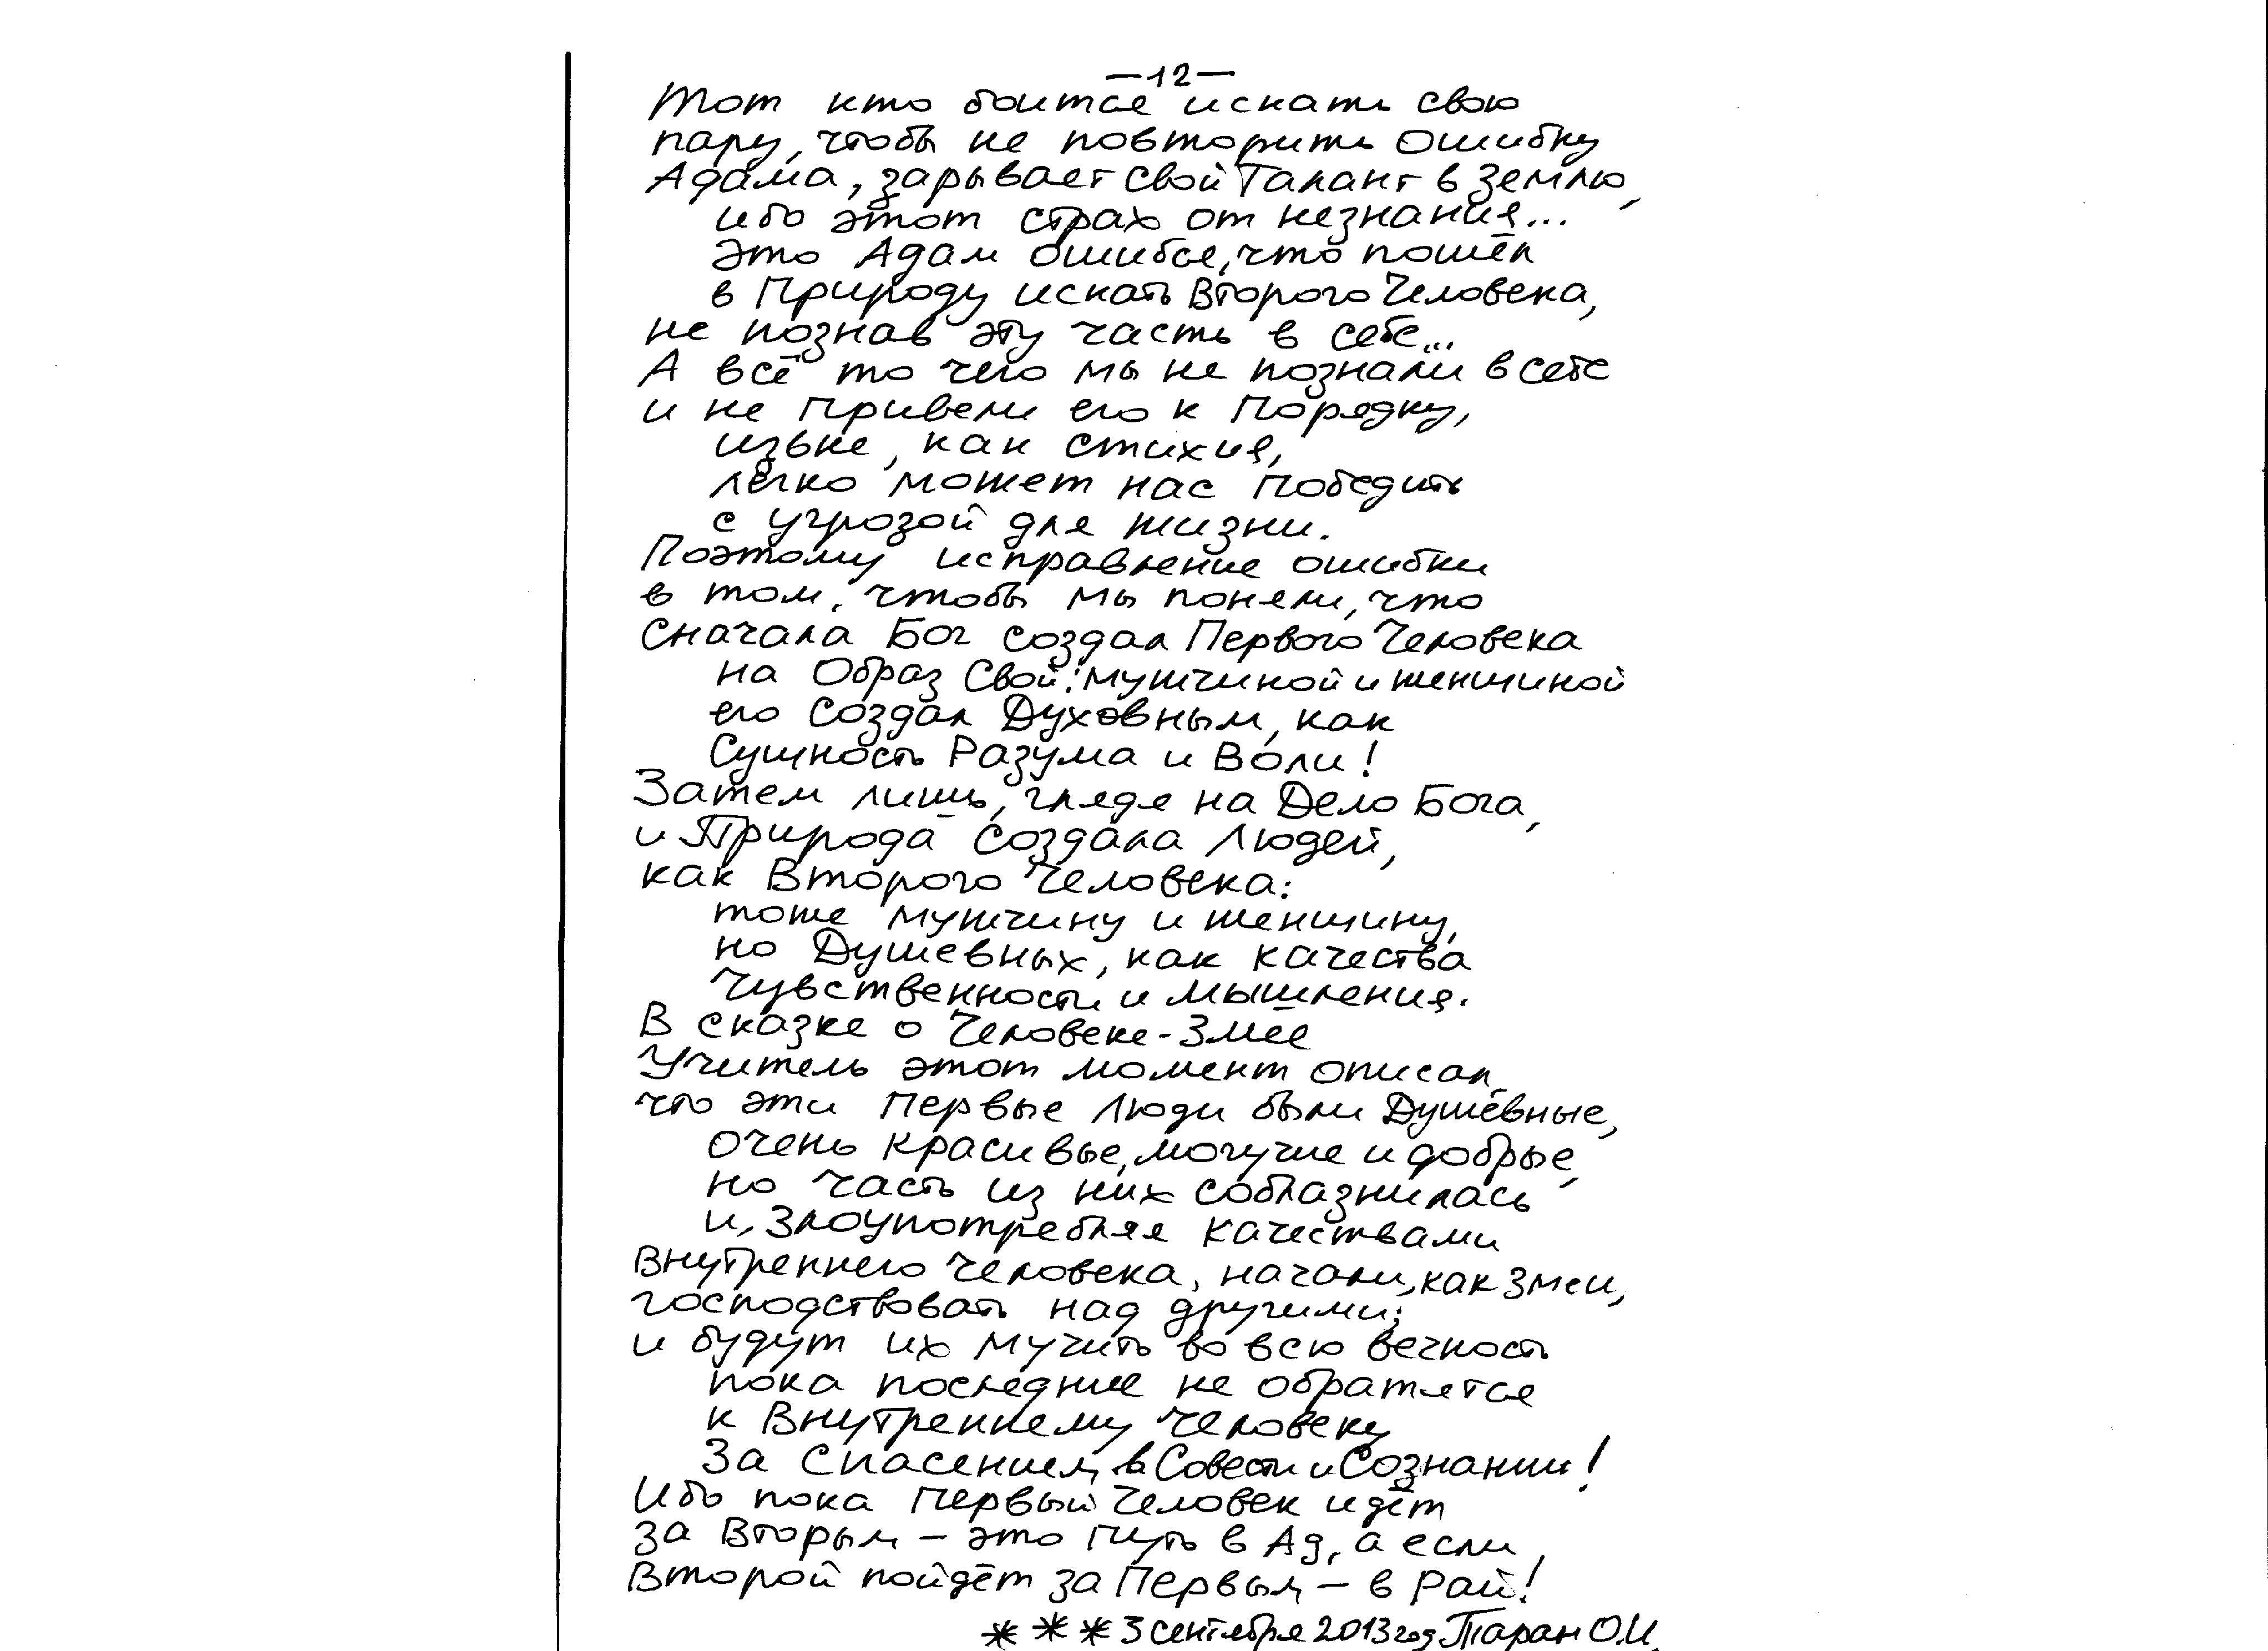 —12—
Тот кто боится искать свою
пару, чтобы не повторить ошибку
Адама, зарывает свой Талант в землю,
ибо этот страх от незнания...
Это Адам ошибся, что пошёл
в Природу искать Второго Человека,
не познав эту часть в себе...
А всё то чего мы не познали в себе
и не привели его к Порядку,
извне, как стихия,
легко может нас победить
с угрозой для жизни.
Поэтому исправление ошибки
в том, чтобы мы поняли, что
Сначала Бог создал Первого Человека
на Образ Свой: мужчиной и женщиной
его создал Духовным, как
Сущность Разума и Воли!
Затем лишь, глядя на Дело Бога,
и Природа создала Людей,
как Второго Человека:
тоже мужчину и женщину,
но Душевных, как качества
Чувственности и Мышления.
В сказке о Человеке-Змее
Учитель этот момент описал,
что эти Первые Люди были Душевные,
очень красивые, могучие и добрые,
но часть из них соблазнилась
и, злоупотребляя качествами
Внутреннего Человека, начали, как Змеи,
господствовать над другими;
и будут их мучить во всю вечность
пока последние не обратятся
к Внутреннему Человеку
За Спасением, в Совести и Сознании!
Ибо пока Первый Человек идёт
за Вторым — это Путь в Ад, а если
Второй пойдёт за Первым — в Рай!
* * * 3 сентября 2013 год Таран О.И.